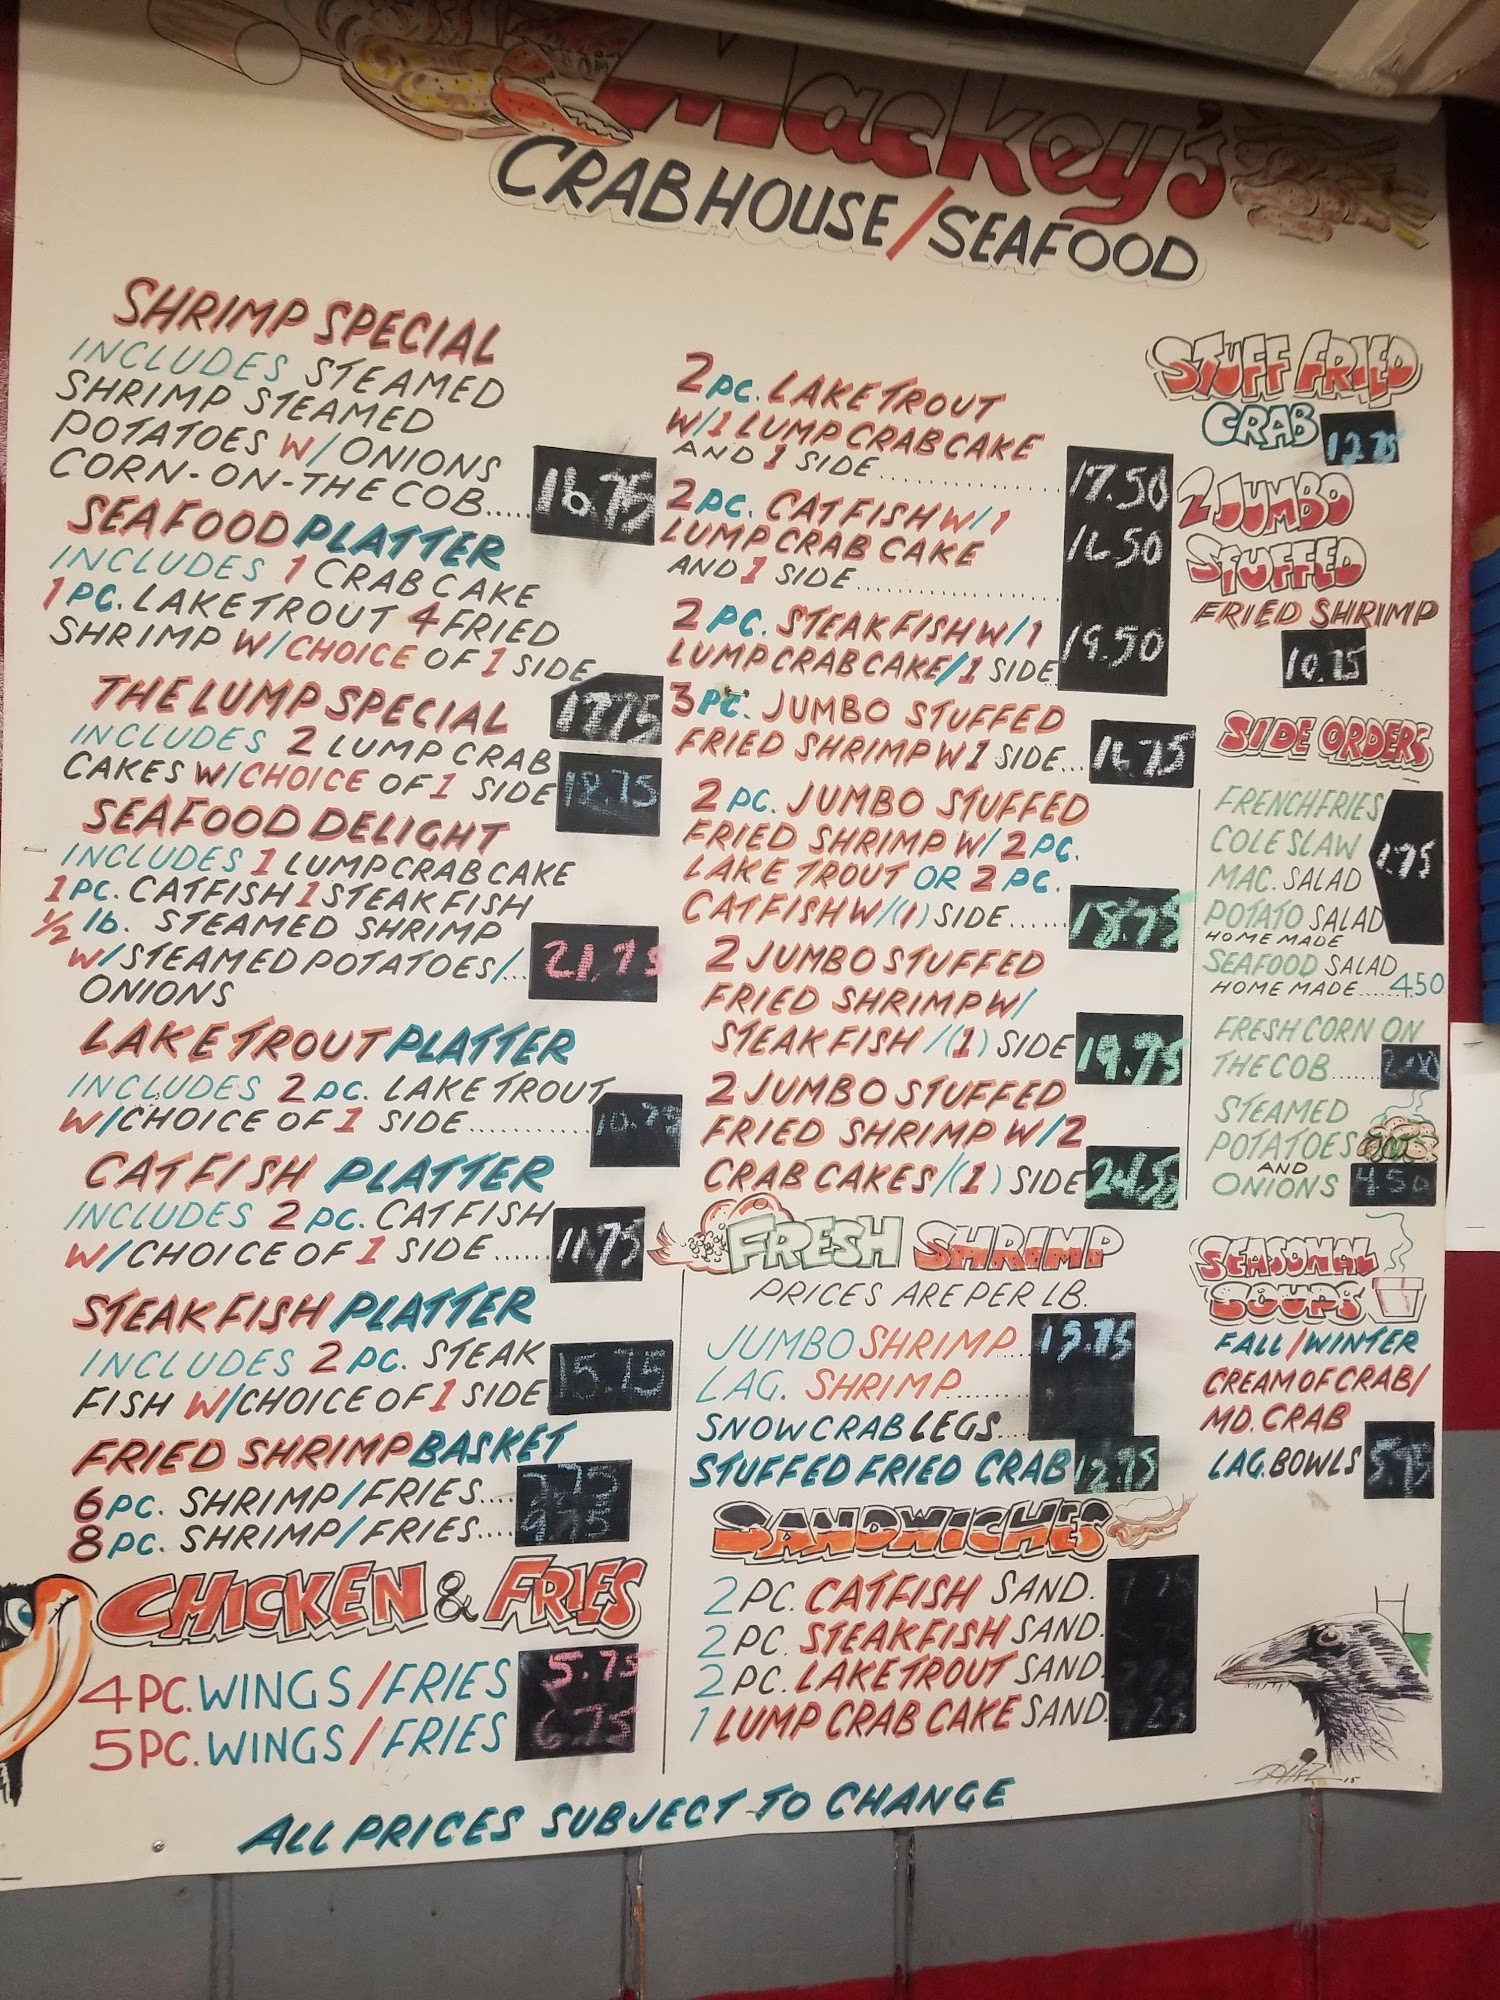 Mackey's
CRAB HOUSE/SEAFOOD
SHRIMP SPECIAL
INCLUDES STEAMED
SHRIMP STEAMED
POTATOES W/ONIONS
CORN-ON-THE COB..... 16.75
SEAFOOD PLATTER
INCLUDES 1 CRAB CAKE
1 PC. LAKE TROUT 4 FRIED
SHRIMP W/CHOICE OF 1 SIDE
17.75
THE LUMP SPECIAL
INCLUDES 2 LUMP CRAB
CAKES W/CHOICE OF 1 SIDE 18.75
SEAFOOD DELIGHT
INCLUDES 1 LUMP CRAB CAKE
1 PC. CATFISH 1 STEAK FISH
1/2 lb. STEAMED SHRIMP
W/STEAMED POTATOES/... 21.75
ONIONS
LAKE TROUT PLATTER
INCLUDES 2 PC. LAKE TROUT
W/CHOICE OF 1 SIDE........... 10.75
CATFISH PLATTER
INCLUDES 2 PC. CATFISH
W/CHOICE OF 1 SIDE...... 11.75
STEAK FISH PLATTER
INCLUDES 2 PC. STEAK
FISH W/CHOICE OF 1 SIDE 15.75
FRIED SHRIMP BASKET
6 PC. SHRIMP/FRIES....
8 PC. SHRIMP/FRIES.... 9.75
CHICKEN & FRIES
4 PC. WINGS/FRIES 5.75
5 PC. WINGS/FRIES 6.75
2 PC. LAKE TROUT
W/1 LUMP CRAB CAKE
AND 1 SIDE.................. 17.50
2 PC. CATFISH W/1
LUMP CRAB CAKE 16.50
AND 1 SIDE....................
2 PC. STEAK FISH W/1
LUMP CRAB CAKE/1 SIDE 19.50
3 PC. JUMBO STUFFED
FRIED SHRIMP W 1 SIDE... 16.75
2 PC. JUMBO STUFFED
FRIED SHRIMP W/ 2 PC.
LAKE TROUT OR 2 PC.
CATFISH W/(1) SIDE...... 18.75
2 JUMBO STUFFED
FRIED SHRIMP W/
STEAK FISH /(1) SIDE 19.75
2 JUMBO STUFFED
FRIED SHRIMP W/2
CRAB CAKES/(1) SIDE
FRESH SHRIMP
PRICES ARE PER LB.
JUMBO SHRIMP...
LAG. SHRIMP........
SNOW CRAB LEGS...
STUFFED FRIED CRAB 12.75
SANDWICHES
2 PC. CATFISH SAND. 7.75
2 PC. STEAK FISH SAND.
2 PC. LAKE TROUT SAND.
1 LUMP CRAB CAKE SAND.
STUFF FRIED
CRAB 12.75
2 JUMBO
STUFFED
FRIED SHRIMP
10.75
SIDE ORDERS
FRENCH FRIES
COLE SLAW 1.75
MAC. SALAD
POTATO SALAD
HOME MADE
SEAFOOD SALAD
HOME MADE.....4.50
FRESH CORN ON
THE COB........ 2.00
STEAMED
POTATOES
AND
ONIONS 4.50
SEASONAL
SOUPS
FALL/WINTER
CREAM OF CRAB/
MD. CRAB
LAG. BOWLS 5.75
ALL PRICES SUBJECT TO CHANGE